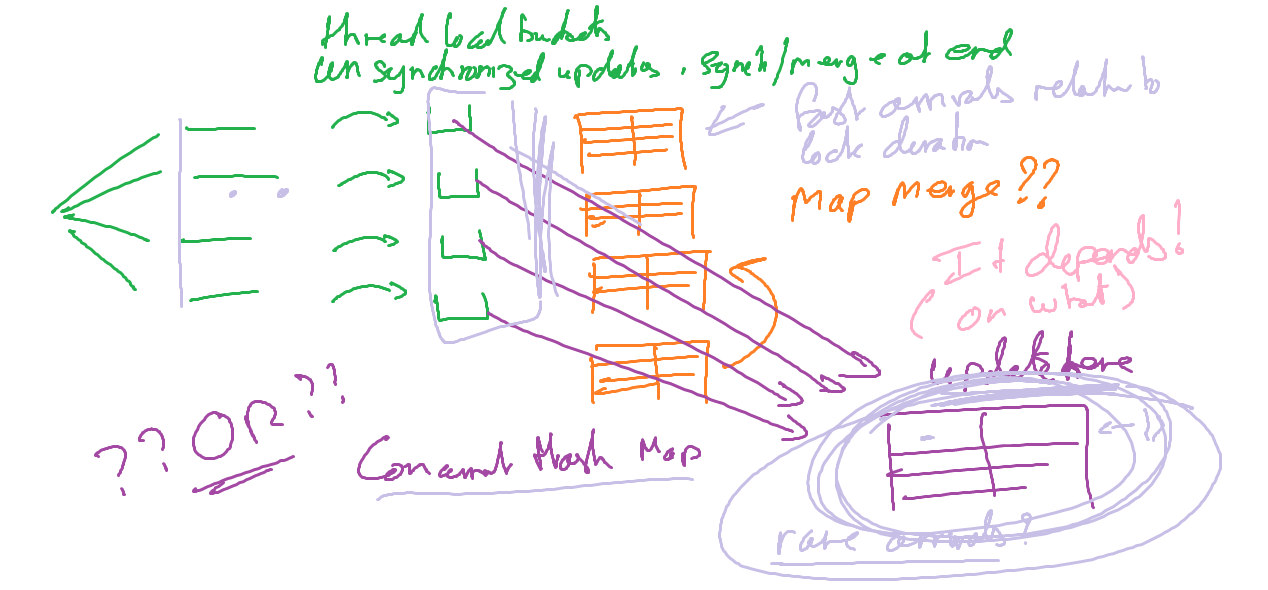 thread local buckets
unsynchronized updates, synch/merge at end
fast arrivals relative to
lock duration
Map merge??
It depends!
(on what)
update here
?? OR ??
Concurrent Hash Map
rare arrivals?